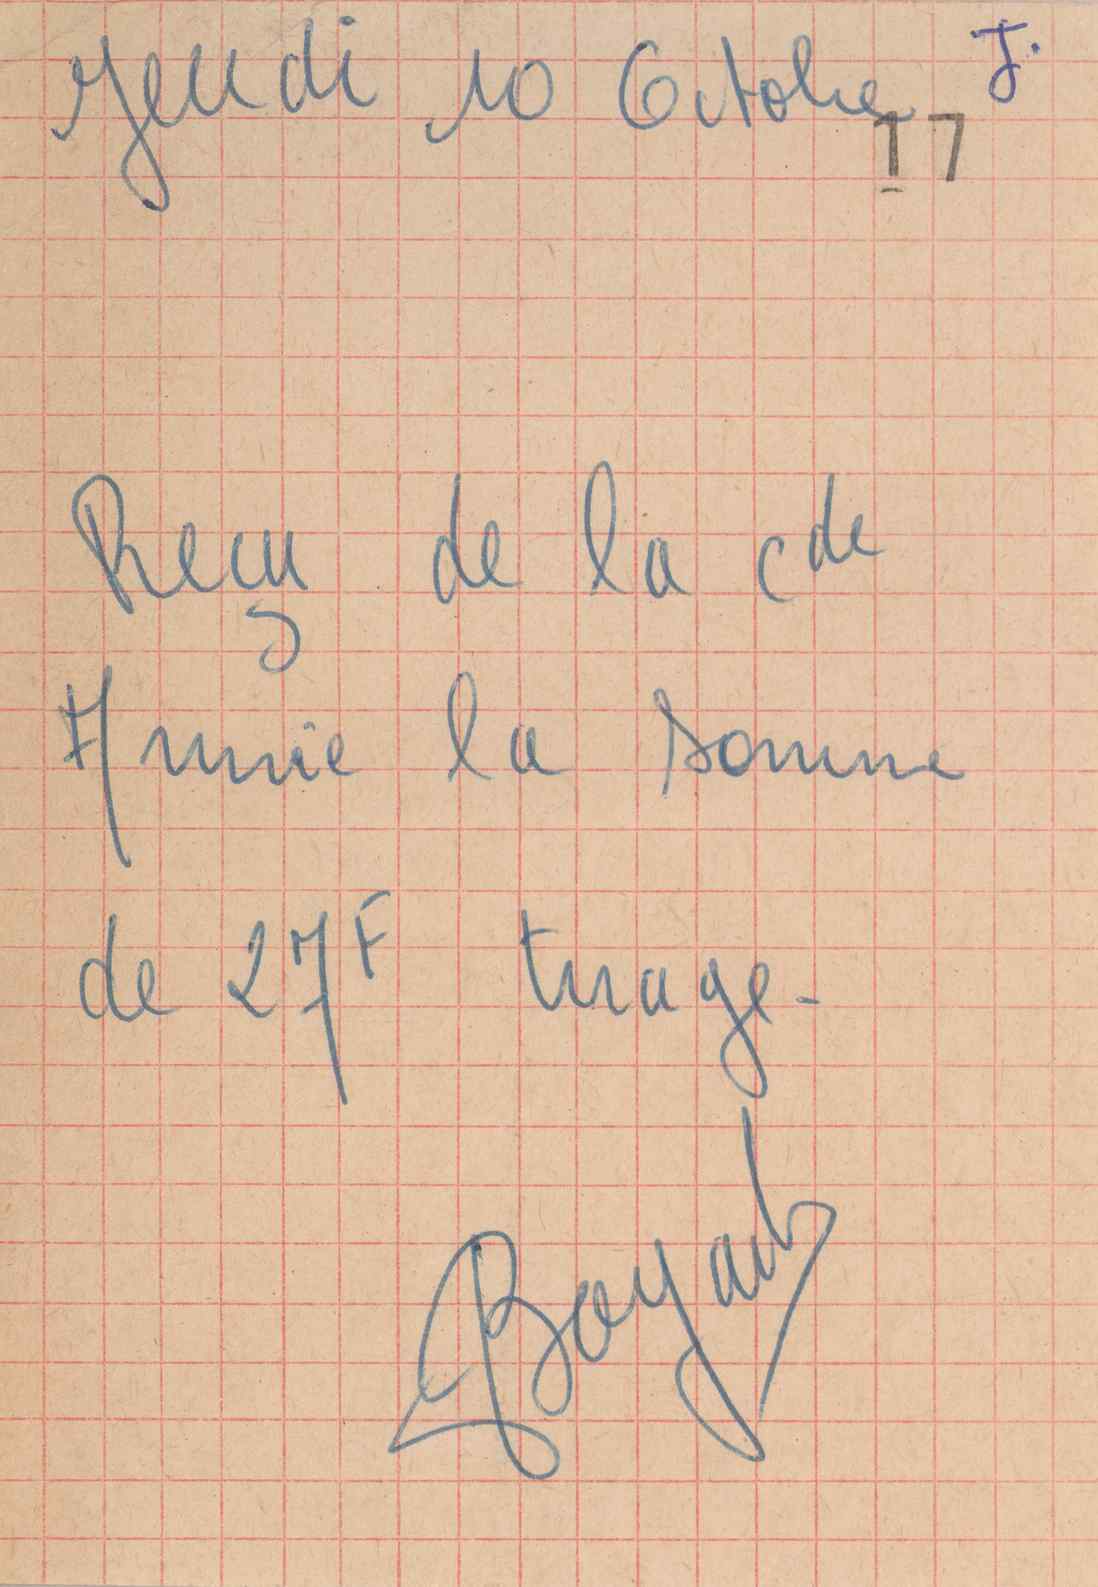 Jeudi 10 Octobre J.
17
Reçu de la cde
Annie la somme
de 27F tirage-